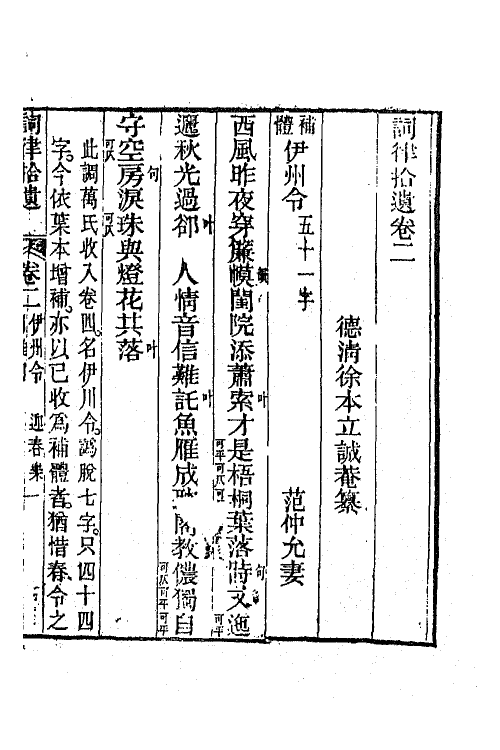 詞律拾遺卷二
德清徐本立誠菴纂
補體 伊州令 五十一字 范仲允妻
西風昨夜穿簾幙韻閨院添蕭索叶才可平是可仄梧可平桐葉落時句又迤可平
邐秋光過卻叶 人情音信難託叶魚雁成耽閣教可仄儂可平獨可平自可平
守可仄空房句淚可仄珠與燈花共落叶
此調萬氏收入卷四。名伊川令。爲脫七字。只四十四
字。今依葉本增補。亦以已收爲補體者。猶惜春令之
詞律拾遺 卷二 伊州令 迎春樂 一